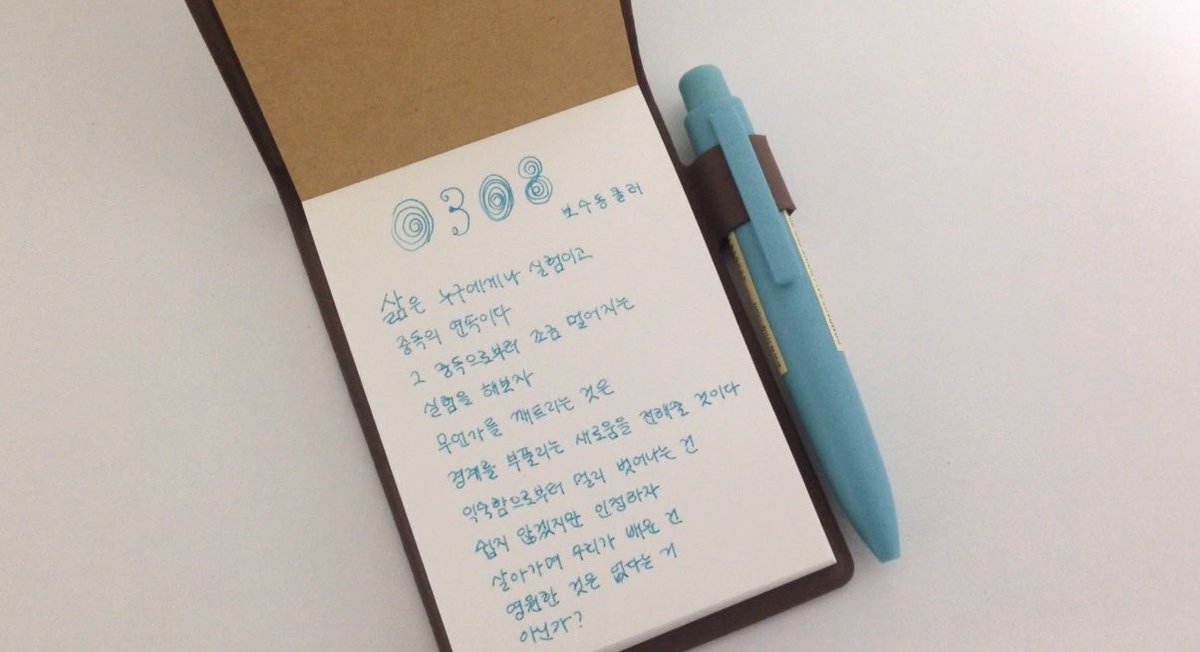 0308
보수동쿨러
삶은 누구에게나 실험이고
중독의 연속이다
그 중독으로부터 조금 멀어지는
실험을 해보자
무언가를 깨트리는 것은
경계를 부풀리는 새로움을 전해줄 것이다
익숙함으로부터 멀리 벗어나는 건
쉽지 않겠지만 인정하자
살아가며 우리가 배운 건
영원한 것은 없다는 거
아닌가?